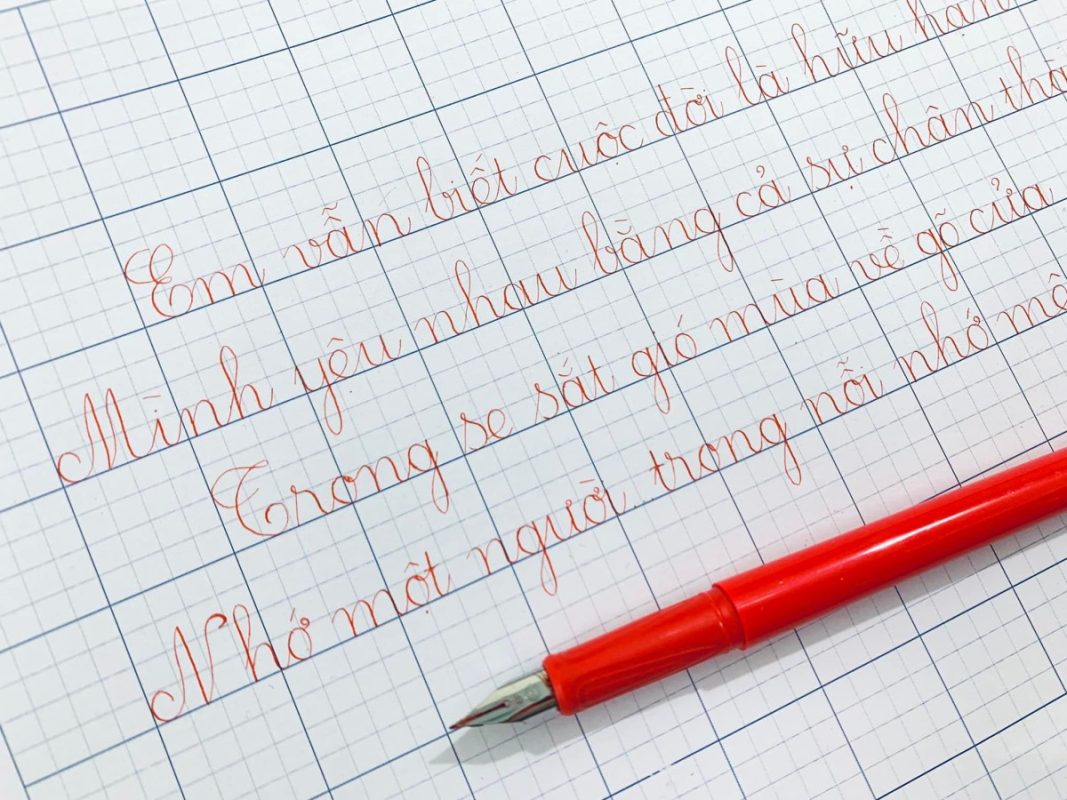 Em vẫn biết cuộc đời là hữu hạn
Mình yêu nhau bằng cả sự chân
Trong se sắt gió mùa về gõ cửa
Nhớ một người trong nỗi nhớ